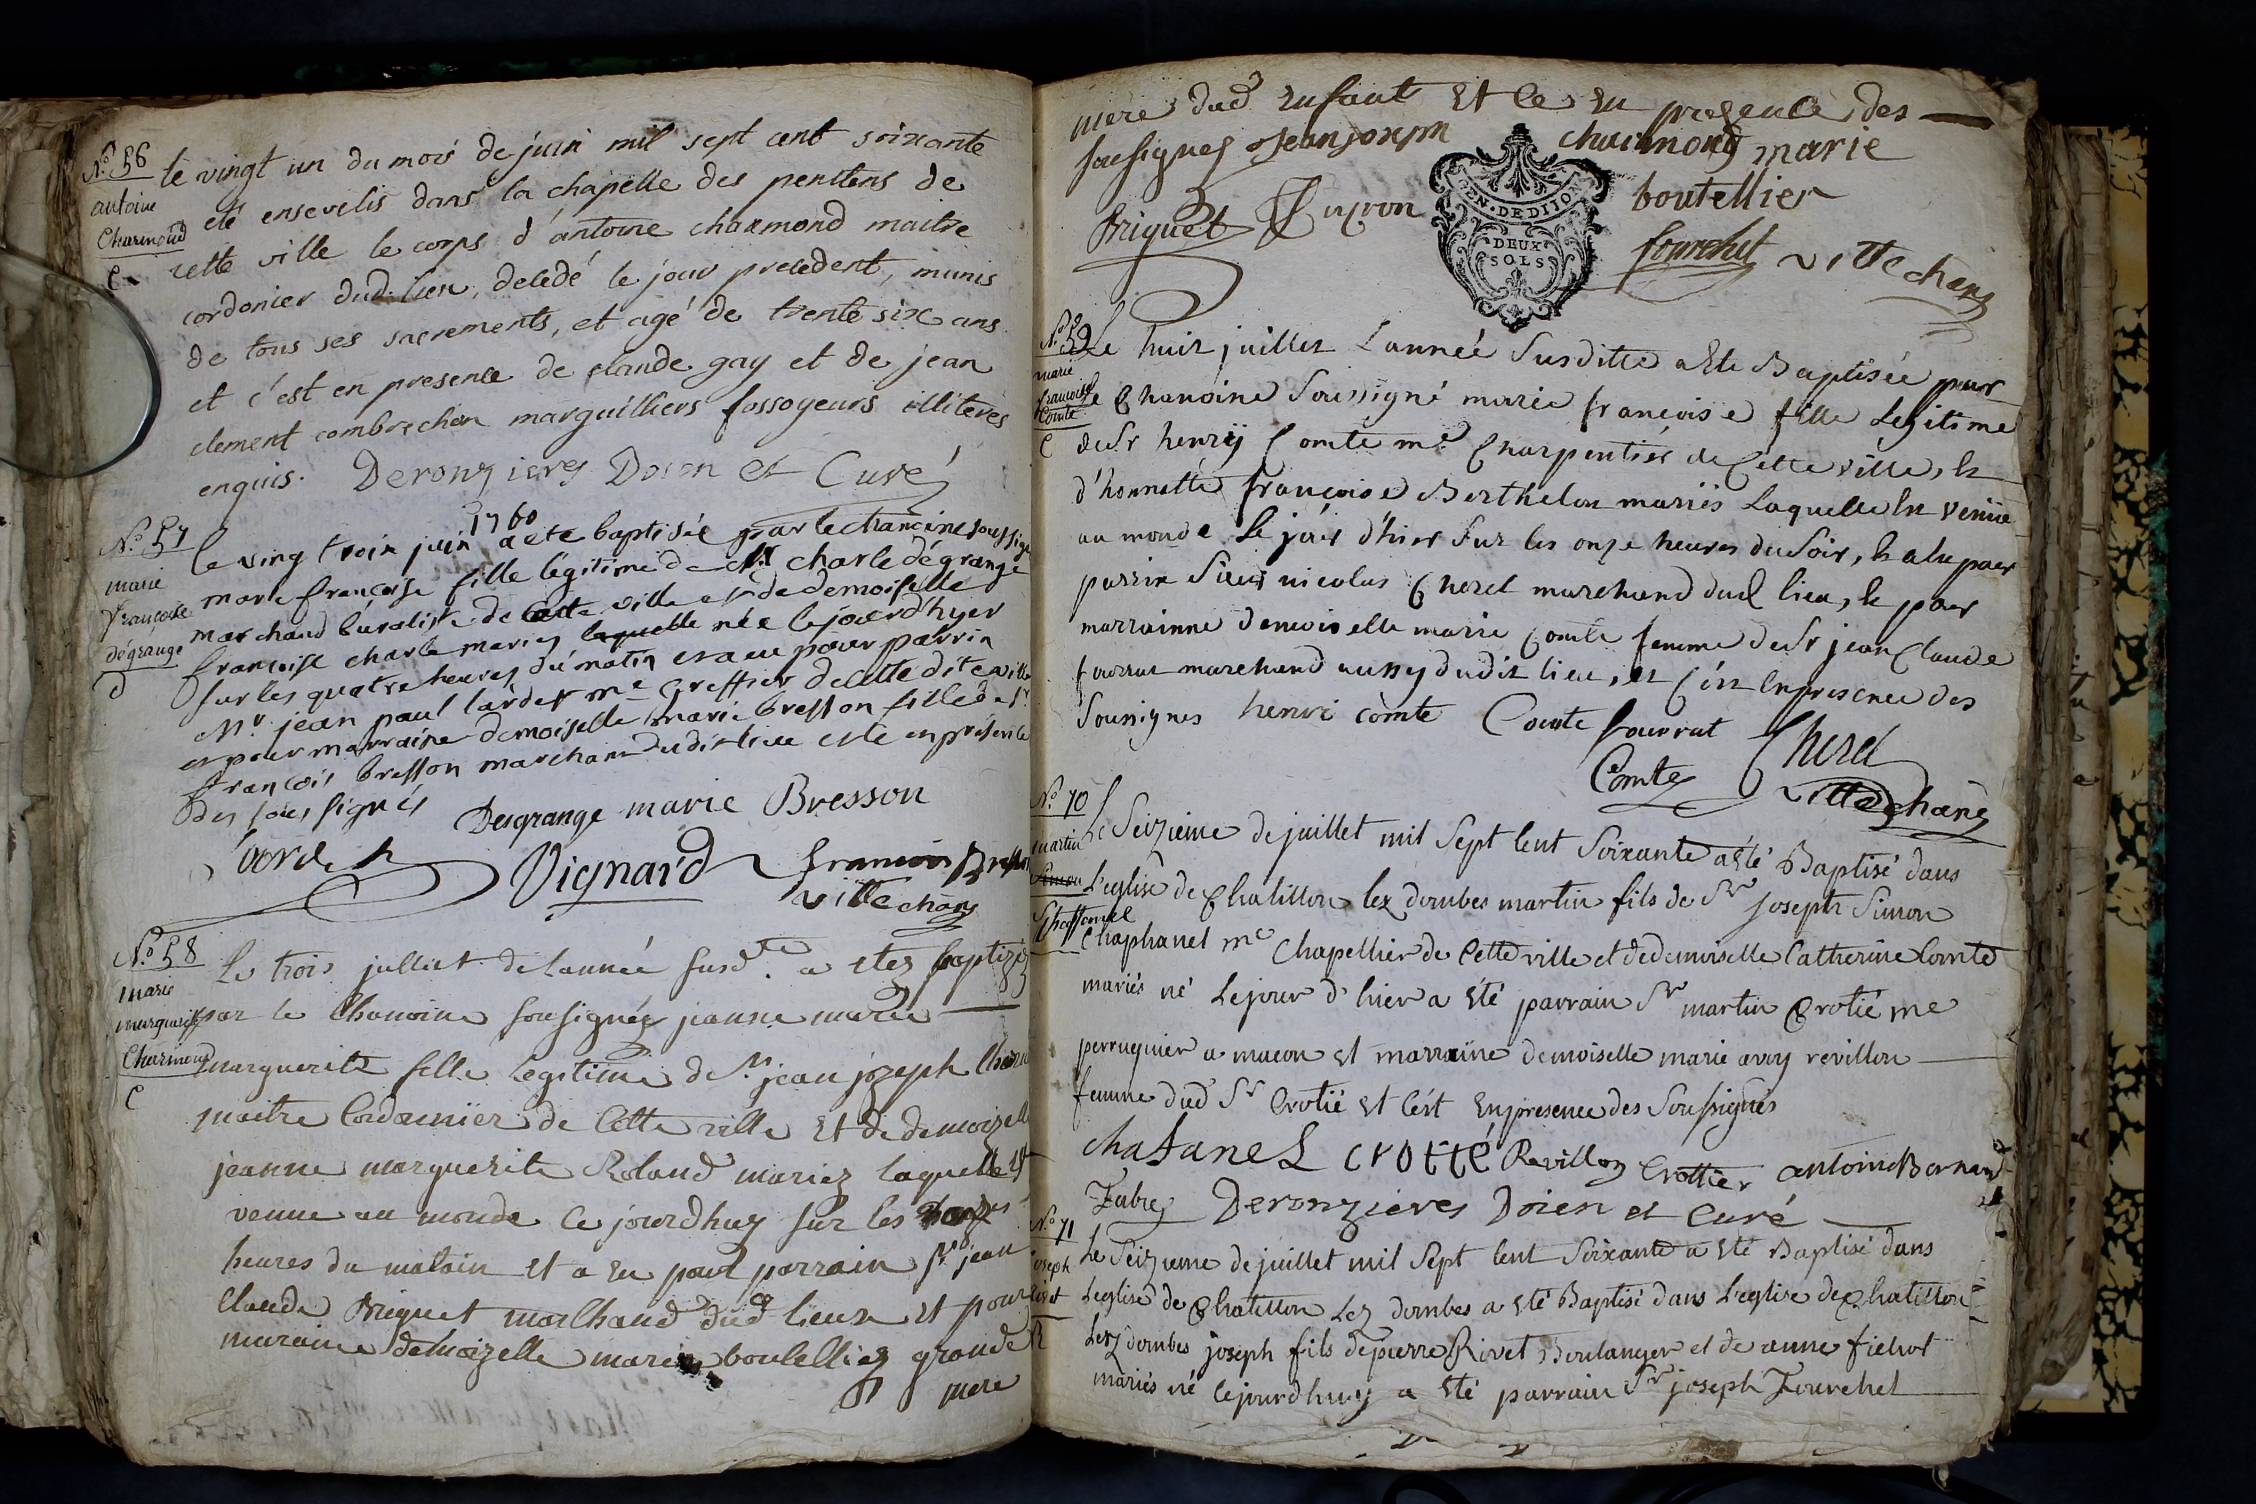 N.° 56
antoine
Charmond
le vingt un du mois de juin mil sept cent soixante
eté ensevelis dans la chapelle des penitens de
cette ville le corps d'antoine charmond maitre
cordonier dud. lieu, dcledé le jour precedent, munis
de tous ses sacrements, et agé de trente six ans
et c'est en presence de claude gay et de jean
clement combrechon marguilliers fossoyeurs illiteres
enquis. Deronzieres Doien et Curé
N.° 57
marie
françoise
dégrange
d
1760
le ving trois juin a ete baptisée par le chanoine soussigné
marie françoise fille légitime de Sr charle dégrange
marchand buraliste de cette ville et de demoiselle
francoise charle mariés laquelle née le jourd'hyer
sur les quatre heures du matin et a eu pour parrin
Mr. jean paul lardet me Greffier de cette dite ville
et pour marraine demoiselle marie bresson fille de Sr
françois bresson marchand dudit lieu et le en présence
des sous signés
Desgrange marie Bresson
Vignard francois Bresson
villechans
N.° 58
marie
marguerite
Charmond
C
Le trois julliet de lanneé susdte. a etez baptizé
par le Chanoine sousignéz jeanne marie
marguerite fille legitime de Sr. jean jozeph Charm
maitre Cordannier de Cette ville Et de demoizelle
jeanne marguerite Roland mariez laquelle est
venue au monde Ce jourdhuy sur les
heures du matain Et a Eu pour parrain Sr. jean
Claude Briguet marChand dud lieux Et pour
maraine demoizelle marie boutelliez grande
mere
mere dud Enfant Et Ce En presence des
sousignez Jean joseph charmond marie
Briguet boutellier
fourchet villechans
GEN. DE DIJON
DEUX
SOLS
N.° 59
marie
francoise
Comte
C
Le huit juillet Lanneé Susditte a Ete Baptisée par
le Chanoine Soussigné marie françoise fille Legitime
de Sr henry Comte me Charpentier de Cette ville, et
d'honnette françoise Berthelon mariés Laquelle En venüe
au monde Le jour d'hier Sur les onze heures du Soir, et a Eu pour
parrin Sieur nicolas Cheret marchand dud lieu, et pour
marrainne demoiselle marie Comte femme de Sr jean Claude
fourrat marchand aussy dudit lieu, et C'est En presence des
Soussignes henri comte Comte fourrat
Comte Cheret
villechans
N.° 70
martin
Simon
Chaffanel
Le Seizieme de juillet mil Sept Cent Soixante a Eté Baptisé dans
L'eglise de Chatillon lez dombes martin fils de Sr Joseph Simon
Chaphanel me Chapellier de Cette ville et de demoiselle Catherine Comte
mariés né Le jour d'hier a Eté parrain Sr martin Crotié me
perruquier a macon et marraine demoiselle marie revillon
femme dud Sr Crotié Et C'est En presence des Soussignés
chafaneL crotté Revillon Crottier antoine Bernard
Fabre Deronzieres Doien et Curé
N.° 71
joseph
rivet
R
Le Seizieme de juillet mil Sept Cent Soixante a Eté Baptisé dans
L'eglise de Chatillon Lez dombes a Eté Baptisé dans L'eglise de Chatillon
Lez dombes joseph fils de pierre Rivet Boulanger et de anne
mariés né Cejourdhuy a Eté parrain Sr joseph Fourchet